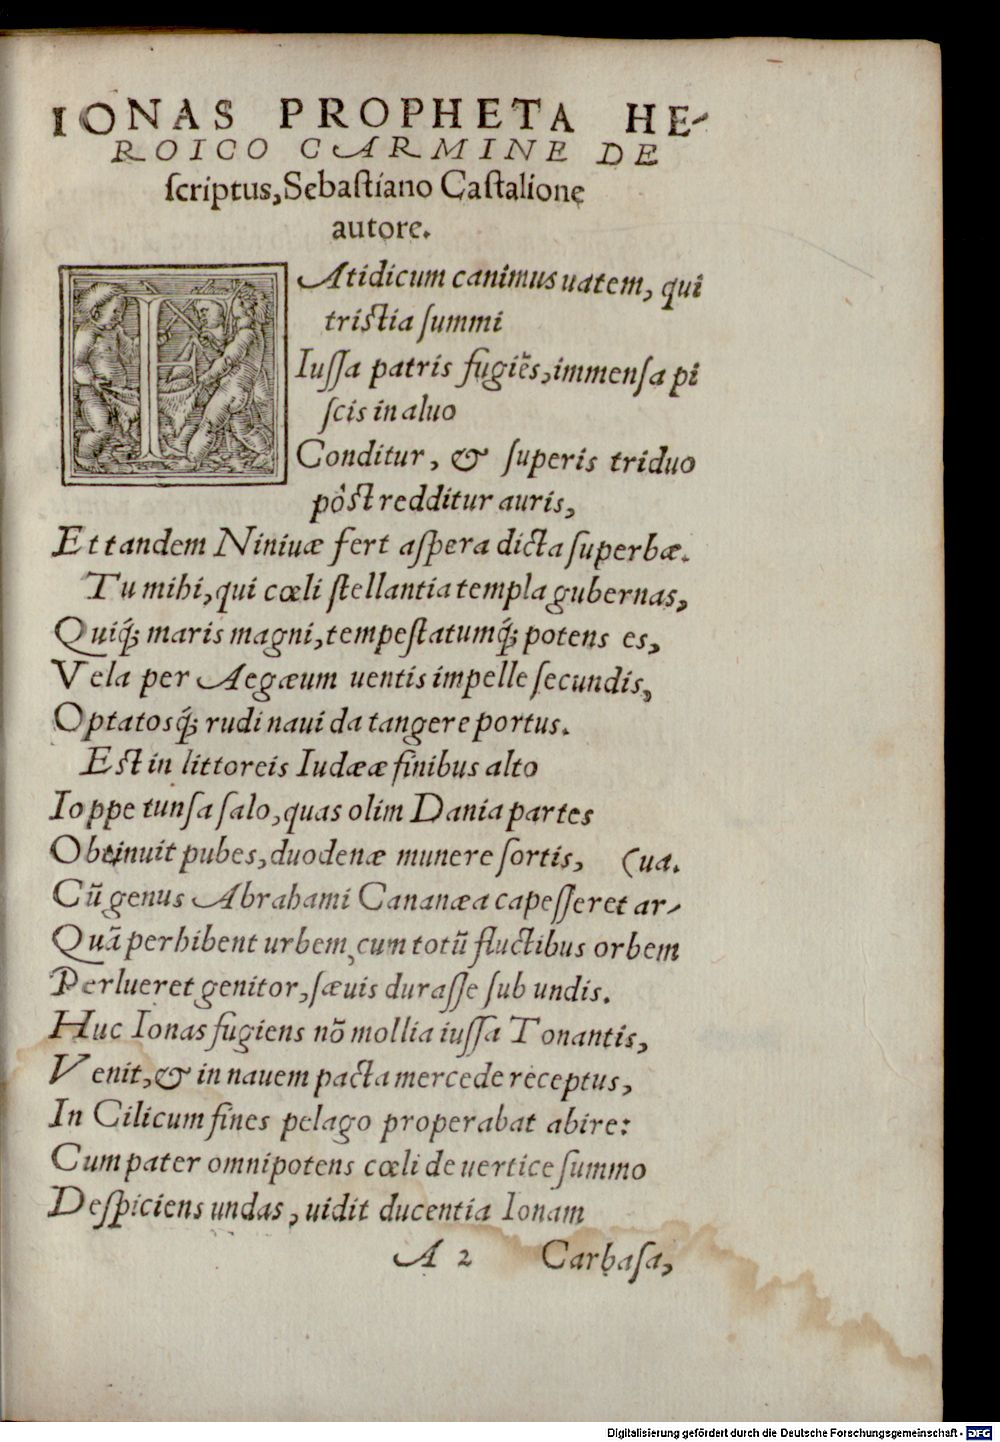 IONAS PROPHETA HE-
ROICO CARMINE DE
scriptus, Sebastiano Castalione
autore.
FAtidicum canimus uatem, qui
tristia summi
Iussa patris fugiẽs, immensa pi
scis in aluo
Conditur, & superis triduo
pòst redditur auris,
Et tandem Niniuæ fert aspera dicta superbæ.
Tu mihi, qui cœli stellantia templa gubernas,
Quiq́; maris magni, tempestatumq́; potens es,
Vela per Aegæum uentis impelle secundis,
Optatosq́; rudi naui da tangere portus.
Est in littoreis Iudææ finibus alto
Ioppe tunsa salo, quas olim Dania partes
Obtinuit pubes, duodenæ munere sortis, (ua.
Cũ genus Abrahami Cananæa capesseret ar-
Quã perhibent urbem, cum totũ fluctibus orbem
Perlueret genitor, sæuis durasse sub undis.
Huc Ionas fugiens nõ mollia iussa Tonantis,
Venit, & in nauem pacta mercede receptus,
In Cilicum fines pelago properabat abire:
Cum pater omnipotens cœli de uertice summo
Despiciens undas, uidit ducentia Ionam
A 2 Carbasa,
Digitalisierung gefördert durch die Deutsche Forschungsgemeinschaft - DFG